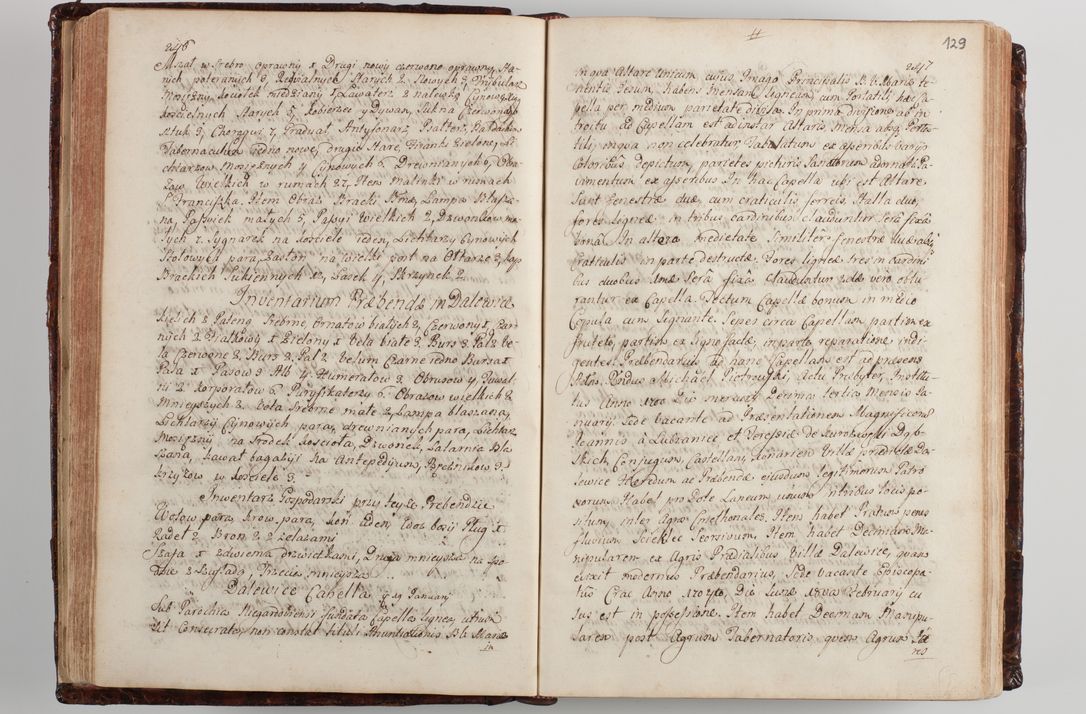 246
Mszał w srebro oprawny 1 Drugi nowy czerwono oprawny, Sta-
rych potarganych 3 Rytualnych Starych 2 Nowych 2 Trybularz
Mosiężny, kociołek miedziany 1 Lawaterz 2 nalewka Cynowa,
kościelnych Starych 3, Kobierzec y Dywan, Sukna Czerwonego
sztuk 3 Chorągwi 7 Graduał Antyfonarz Psałterz, Baldachim
Tabernaculum iedno nowe, drugie Stare, Firanki zielone,
chtarzow Mosiężnych 4 Cynowych 6 Drewnianych 6, Obra-
zow Wielkich w ramach 27, Item Malinki w ramach
Franciszka. Item Obraz Bracki. Lampa Blasza-
na, Passyiek małych 5, Passyi Wielkich 2, Dzwonkow ma-
łych 7. Sygnarek na kościele ieden, Lichtarzy Cynowych
Stołowych para, zasłon na wielki post na Ołtarze 3, kap
Brackich Sukiennych Lasek 4, Skrzynek 2.
Inventarium Præbendæ in Dalewice
Kielich 1 Patena Srebrne, Ornatow białych 2, Czerwony 1, Czar-
nych 2 Fiałkowy 1 Zielony 1 Vela białe 3 Burs 3 Pal 2 Ve-
la Czerwone 2 Burs 2 Pal 2 Velum Czarne iedno Bursa 1
Palla 1 Pasow 3 Alb 4 Humerałow 3 Obrusow 4, Tuwal-
ni 2 Korporałow 6 Puryfikaterzy 6 Obrazow wielkich 2
Mnieyszych 2 Vota Srebrne małe 2, Lampa blaszana,
Lichtarzy Cynowych para, drewnianych para, Lichtarz
Mosiężny na Srodek kościoła, Dzwonek, Latarnia Bla-
szana, kawał bagazyi na Antepedyum,
Krzyżow w kościele 3.
Inwentarz Gospodarski przy teyże Prebendzie
Wołow para, krow para, koń ieden, Woz bosy Pług 1
Radeł 2 Bron 2 2 żelazami
Szafa 1 zdwiema drzwiczkami, Druga mnieysza na
2 Szufladą Trzecia mnieysza
Dalewice Capella y 19 January
Sub Parochia Niegardoviensi fundata Capella lignea, utrum
sit Consecrata, non constat tituli Anuntiationis B. V. Mariæ
in

129
247
in qua Altare Unicum, cujus Imago Principalis B. V. Mariæ te-
nentis Jesum, habens Mensam ligneam cum Portatili, hæc Ca-
pella per medium pariete divisa. In prima divisione ab in-
troitu ad Capellam est adinstar Altaris Mensa absq. Porta-
tili, in qua non celebratur Tabulatum ex asseribus varijs
Coloribus depictum, parietes picturis Sanctorum ornati, Pa-
vimentum ex asseribus In hac Capella ubi est Altare
Sunt fenestræ duæ, cum craticulis ferreis, Stalla duo,
fores ligneæ in tribus cardinibus clauduntur Serâ fixâ
bonâ. In altera medietate Similiter fenestræ duæ,
Craticulis in parte destructæ, Fores ligneæ tres in Cardini-
bus duobus unæ Serâ fixâ clauduntur 2dæ vero obtu-
rantur ex Capella. Tectum Capellæ bonum in medio
Coppula cum Signante. Sepes circa Capellam, partim ex
fruteto, partim ex ligno factæ, in parte reparatione indi-
gentes. Præbendarius ad hanc Capellam est ad præsens
Adm. Rndus Michaël Piotrowski, Actu Præsbyter, Institu-
tus Anno 1780 Die mercurij Decima tertia Mensis Ja-
nuarij, Sede Vacante ad Præsentationem Magnificorum
Joannis à Lubraniec et Theresiæ de Zurowski Dąb-
skich, Conjugum, Castellani, Konarien. Villæ prædictæ Da-
lewice Hæredum ac Præbendæ ejusdem legitimorum Patro-
norum. Habet pro Dote Laneum unum in tribus locis po-
situm, inter Agros Cmethonales. Item habet Pratum penes
fluvium Scieklec Seorsivum, Item habet Decimam Ma-
nipularem ex Agris Prædialibus Villæ Dalewice, quam
evicit modernus Præbendarius, Sede Vacante Episcopa-
tus Crac Anno Die Lunæ 18va February cu
jus est in possessione. Item habet Decimam Manipu-
larem post Agrum Tabernatoris, quem Agrum Hæ
res